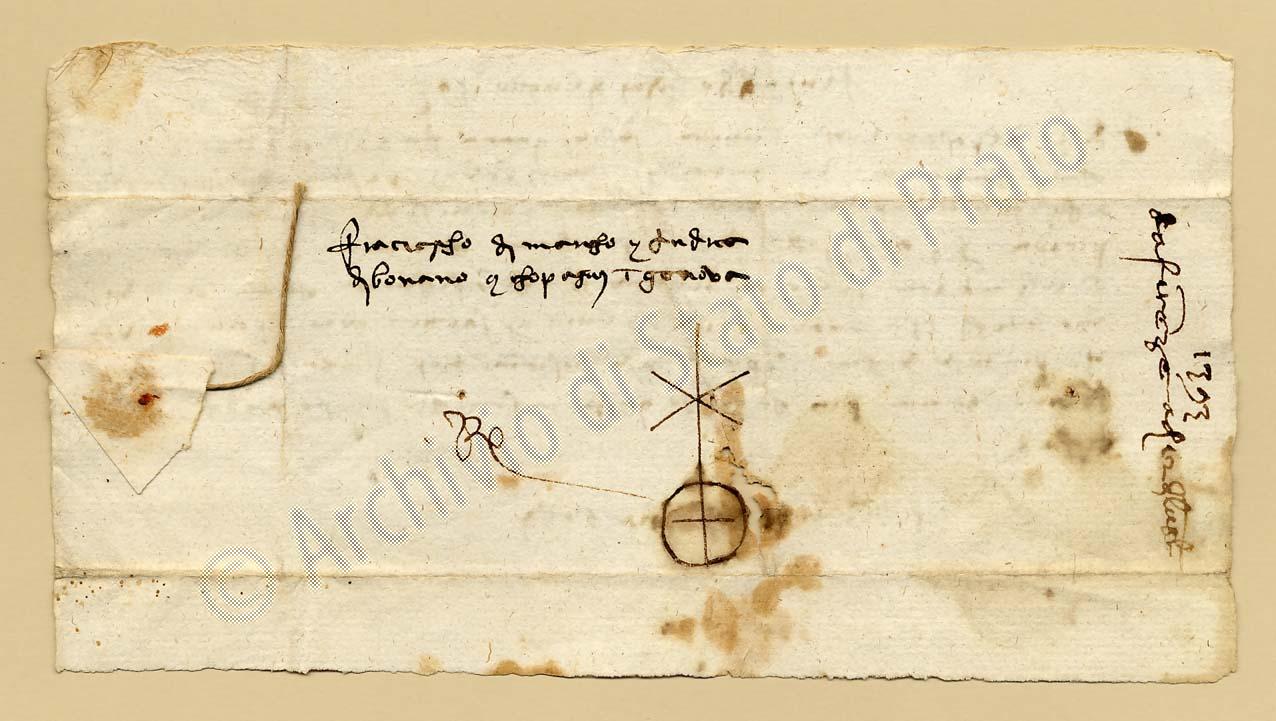 Franciescho di marcho e Andrea
di bonano e chopagni i genova
R
1393
da firenze adi 9 di luglo
© Archivio di Stato di Prato